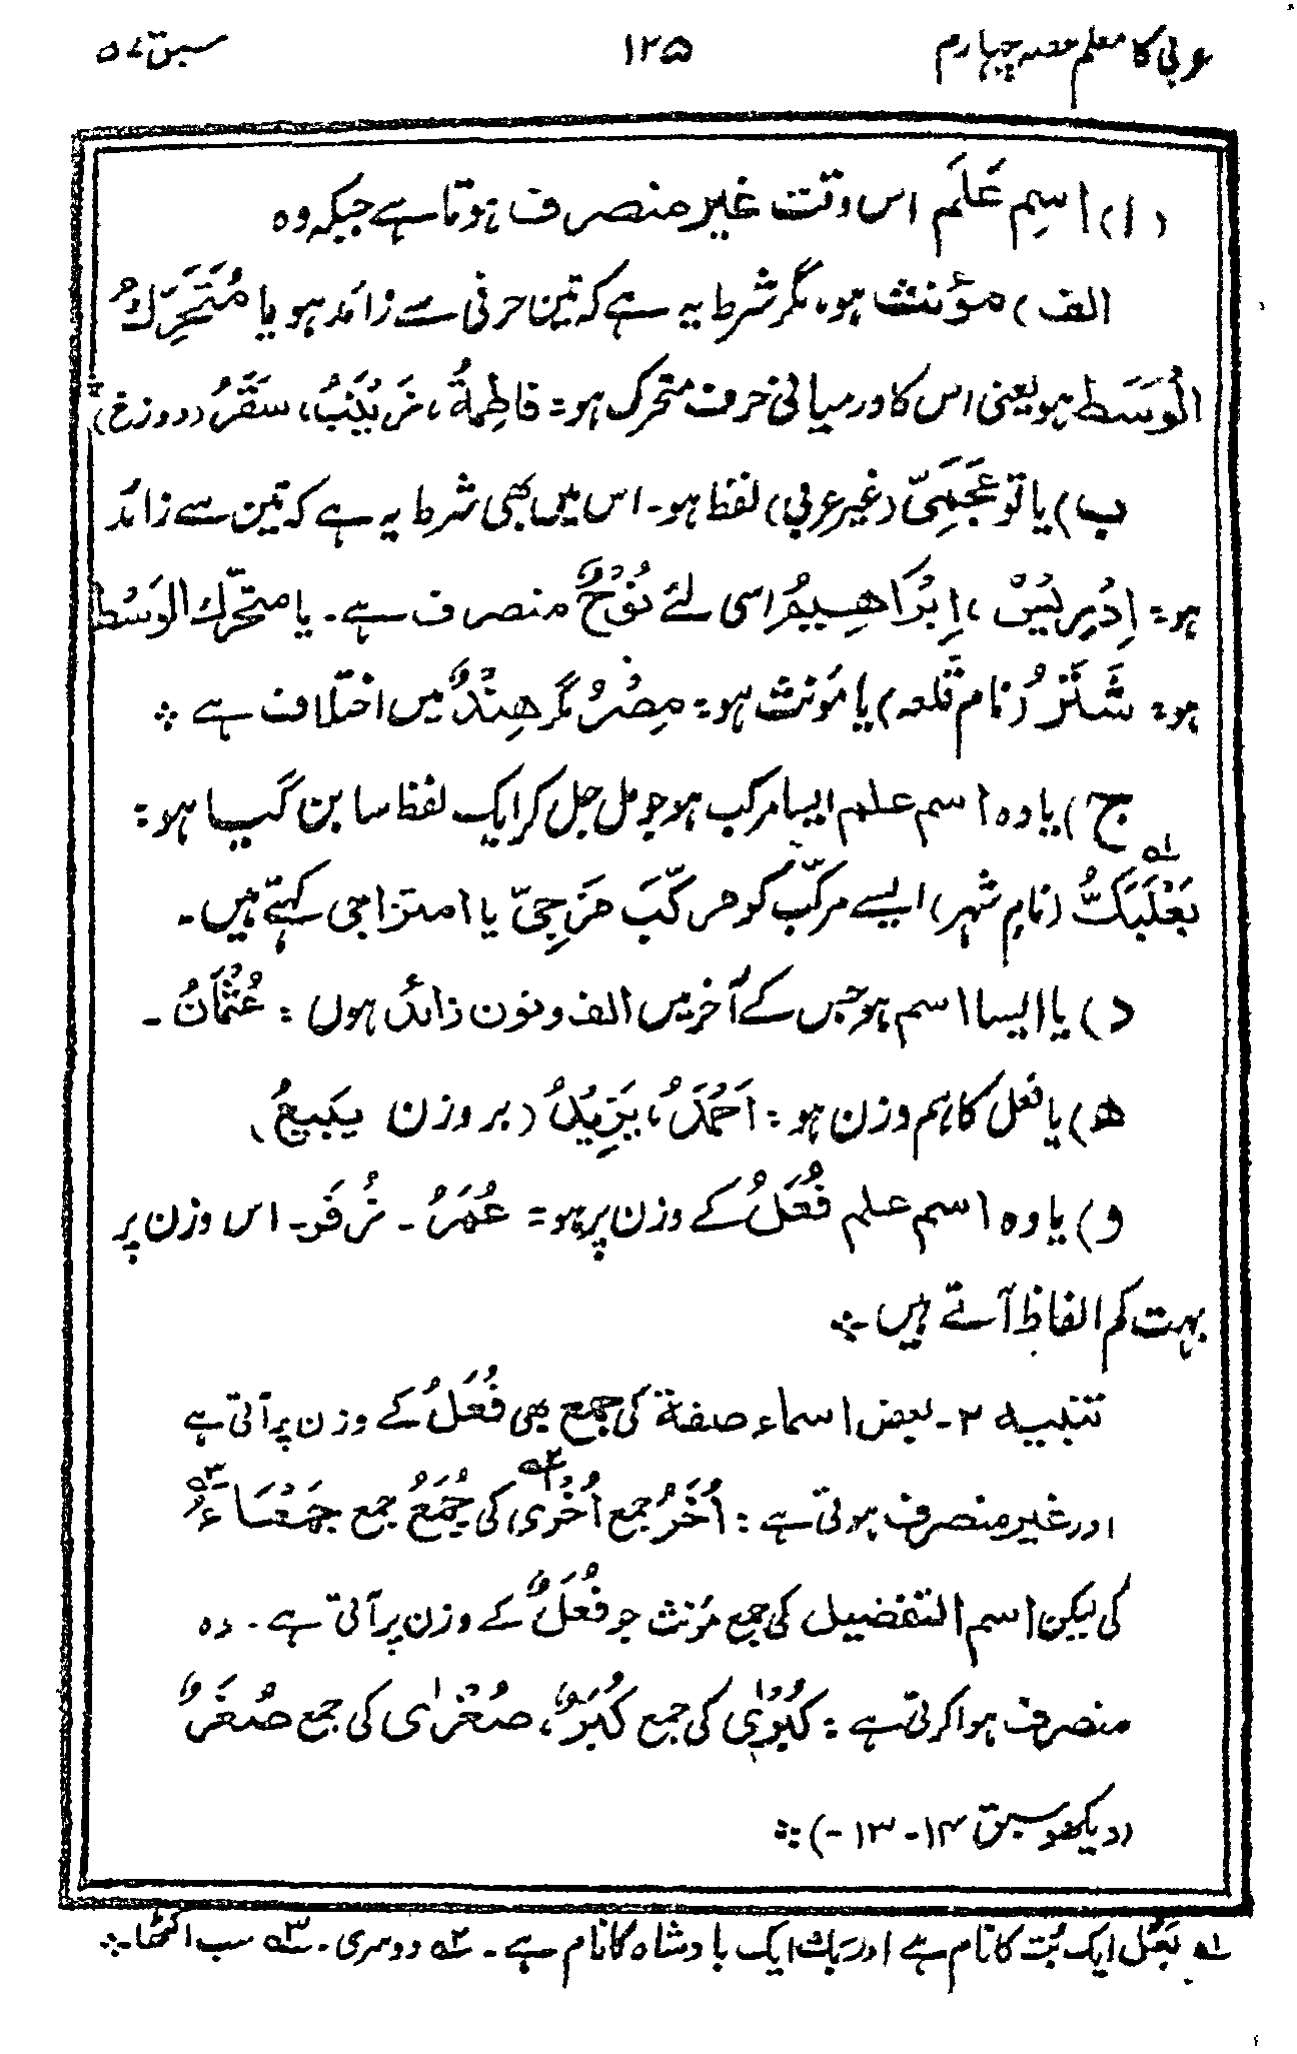 عربی کا معلم حصہ چہارم
۱۲۵
سبق ۵۷
(۱) اسمِ عَلَم اس وقت غیر منصرف ہوتا ہے جبکہ وہ
الف) مؤنث ہو، مگر شرط یہ ہے کہ تین حرفی سے زائد ہو یا مُتَحَرِّكُ
الْوَسَط ہو یعنی اس کا درمیانی حرف متحرک ہو= فَاطِمَةُ، زَيْنَبُ، سَقَرُ (دوزخ)
ب) یا تو عَجَمِیّ (غیر عربی) لفظ ہو۔ اس میں بھی شرط یہ ہے کہ تین سے زائد
ہو= اِدْرِيْسُ، اِبْرَاهِيمُ اسی لئے نُوْحٌ منصرف ہے۔ یا متحرّک الوَسْط
ہو= شَتَرُ (نام قلعہ) یا مؤنث ہو= مِصْرُ مگر هِنْدٌ میں اختلاف ہے ؞
ج) یا وہ اسم علم ایسا مرکب ہو جو مل جل کر ایک لفظ سا بن گیا ہو:
بَعْلَبَكُّ ۱ (نامِ شہر) ایسے مرکّب کو مرکّبَ مَزجِیّ یا امتزاجی کہتے ہیں۔
د) یا ایسا اسم ہو جس کے آخر میں الف و نون زائد ہوں : عُثْمَانُ ۔
ھ) یا فعل کا ہم وزن ہو : اَحْمَدُ، يَزِيْدُ (بر وزن یَبِیعُ)
و) یا وہ اسم علم فُعَلُ کے وزن پر ہو= عُمَرُ ۔ زُفَر۔ اس وزن پر
بہت کم الفاظ آتے ہیں ؞
تنبیہ ۲۔ بعض اسماء صفة کی جمع بھی فُعَلُ کے وزن پر آتی ہے
اور غیر منصرف ہوتی ہے : اُخَرُ جمع اُخْرٰی ۲ کی جُمَعُ جمع جَمْعَاءُ ۳
کی لیکن اسم التفضیل کی جمع مؤنث جو فُعَلٌ کے وزن پر آتی ہے۔ وہ
منصرف ہوا کرتی ہے : كُبْرٰی کی جمع كُبَرٌ، صُغْرٰی کی جمع صُغَرٌ
(دیکھو سبق ۱۴۔ ۱۳-) ؞
۱ بَعْل ایک بُت کا نام ہے اور بك ایک بادشاہ کا نام ہے۔ ۲ دوسری۔ ۳ سب اکٹھا ؞